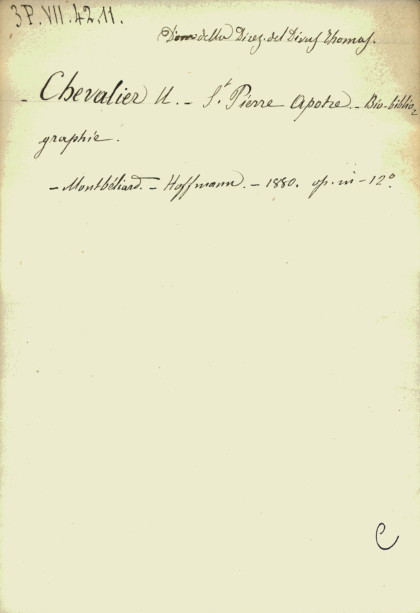 3P.VII.42.11.
Dono della Direz. del Divus Thomas.
- Chevalier U. - St. Pierre Apotre. - Bio-biblio-
graphie.
- Montbéliard. - Hoffmann. - 1880. op. in - 12º.
C